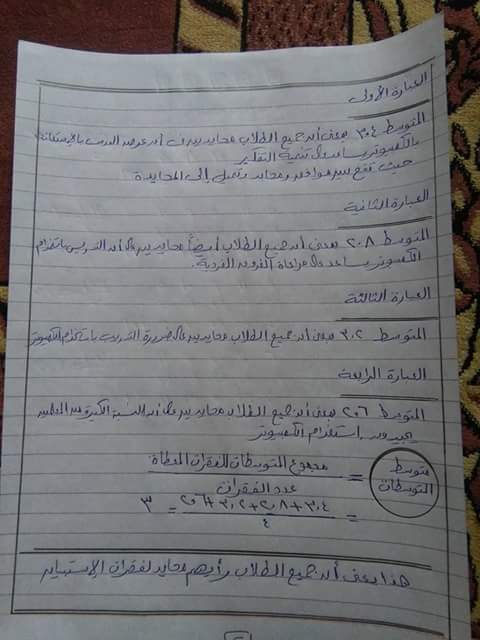 العبارة الأولى
المتوسط ٣.٤ يعنى أن جميع الطلاب محايدين فى أن عرض الدرس بالإستعانة
بالكمبيوتر يساعد على تنمية التفكير
حيث تقع بين موافق ومحايد وتميل إلى المحايدة
العبارة الثانية
المتوسط ٢.٨ يعنى أن جميع الطلاب أيضاً محايدين على أن التدريس باستخدام
الكمبيوتر يساعد على مراعاة الفروق الفردية.
العبارة الثالثة
المتوسط ٣.٢ يعنى أن جميع الطلاب محايدين على ضرورة التدريب باستخدام الكمبيوتر
العبارة الرابعة
المتوسط ٢.٦ يعنى أن جميع الطلاب محايدين على أن النسبة الكبيرة من المعلمين
يجيدون استخدام الكمبيوتر
متوسط المتوسطات = مجموع المتوسطات للفقرات المعطاة
عدد الفقرات
= ٣.٤ + ٢.٨ + ٣.٢ + ٢.٦ = ٣
٤
هذا يعنى أن جميع الطلاب رأيهم محايد لفقرات الإستبيان